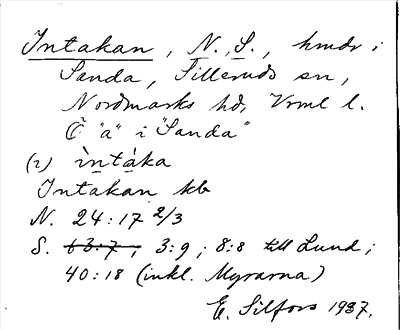 Intakan, N., S., hmdr i
Sanda, Silleruds sn,
Nordmarks hd, Vrml l.
Ö "a" i "Sanda"
(i) ìntàka
Intakan kb
N. 24:17 2/3
S. 63:7, 3:9; 8:8 till Lund;
40:18 (inkl. Myrarna)
E. Silfors 1937.